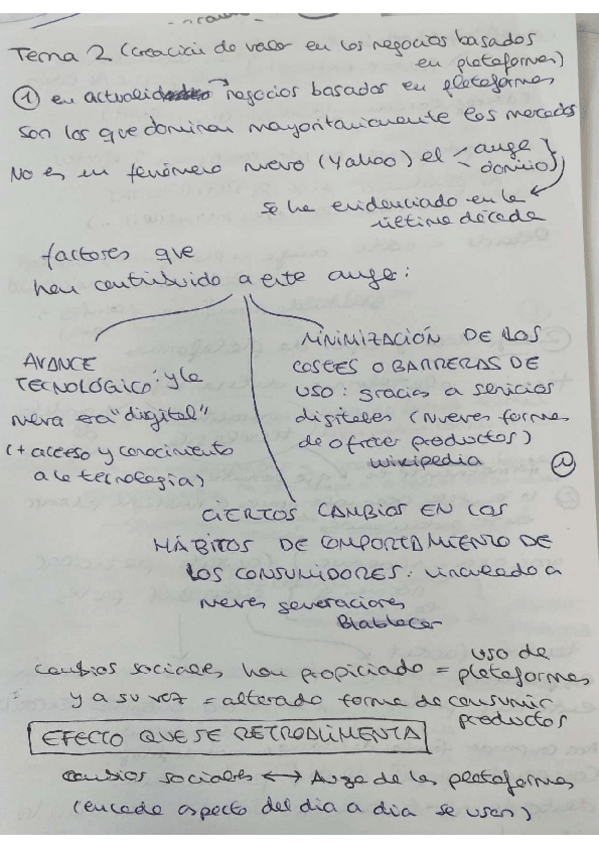 Tema 2 (creación de valor en los negocios basados
en plataformas)
① en actualidad → negocios basados en plataformas
son los que dominan mayoritariamente los mercados
No es un fenómeno nuevo (Yahoo) el auge
dominio
se ha evidenciado en la
última década
factores que
han contribuido a este auge:
AVANCE
TECNOLÓGICO: y la
nueva era "digital"
(+ acceso y conocimiento
a la tecnología)
MINIMIZACIÓN DE LOS
COSTES O BARRERAS DE
USO: gracias a servicios
digitales (nuevas formas
de ofrecer productos)
wikipedia
CIERTOS CAMBIOS EN LOS
HÁBITOS DE COMPORTAMIENTO DE
LOS CONSUMIDORES: vinculado a
nuevas generaciones
Blablacar
cambios sociales han propiciado = uso de
plataformas
y a su vez = alterado forma de consumir
productos
EFECTO QUE SE RETROALIMENTA
cambios sociales ↔ Auge de las plataformas
(en cada aspecto del dia a dia se usan)